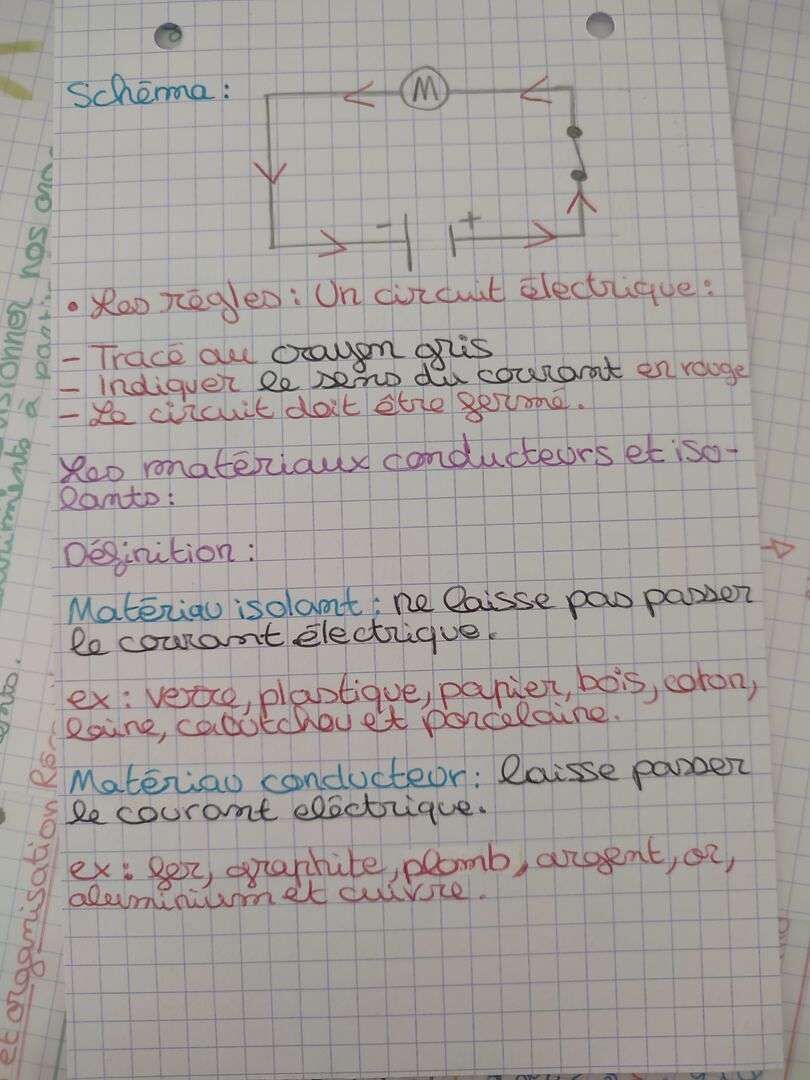 Schéma :
M
- +
• Les règles : Un circuit électrique :
- Tracé au crayon gris
- Indiquer le sens du courant en rouge
- Le circuit doit être fermé.
Les matériaux conducteurs et iso-
lants :
Définition :
Matériau isolant : ne laisse pas passer
le courant électrique.
ex : verre, plastique, papier, bois, coton,
laine, caoutchou et porcelaine.
Matériau conducteur : laisse passer
le courant eléctrique.
ex : fer, graphite, plomb, argent, or,
aluminium et cuivre.
et organisation
nos
à